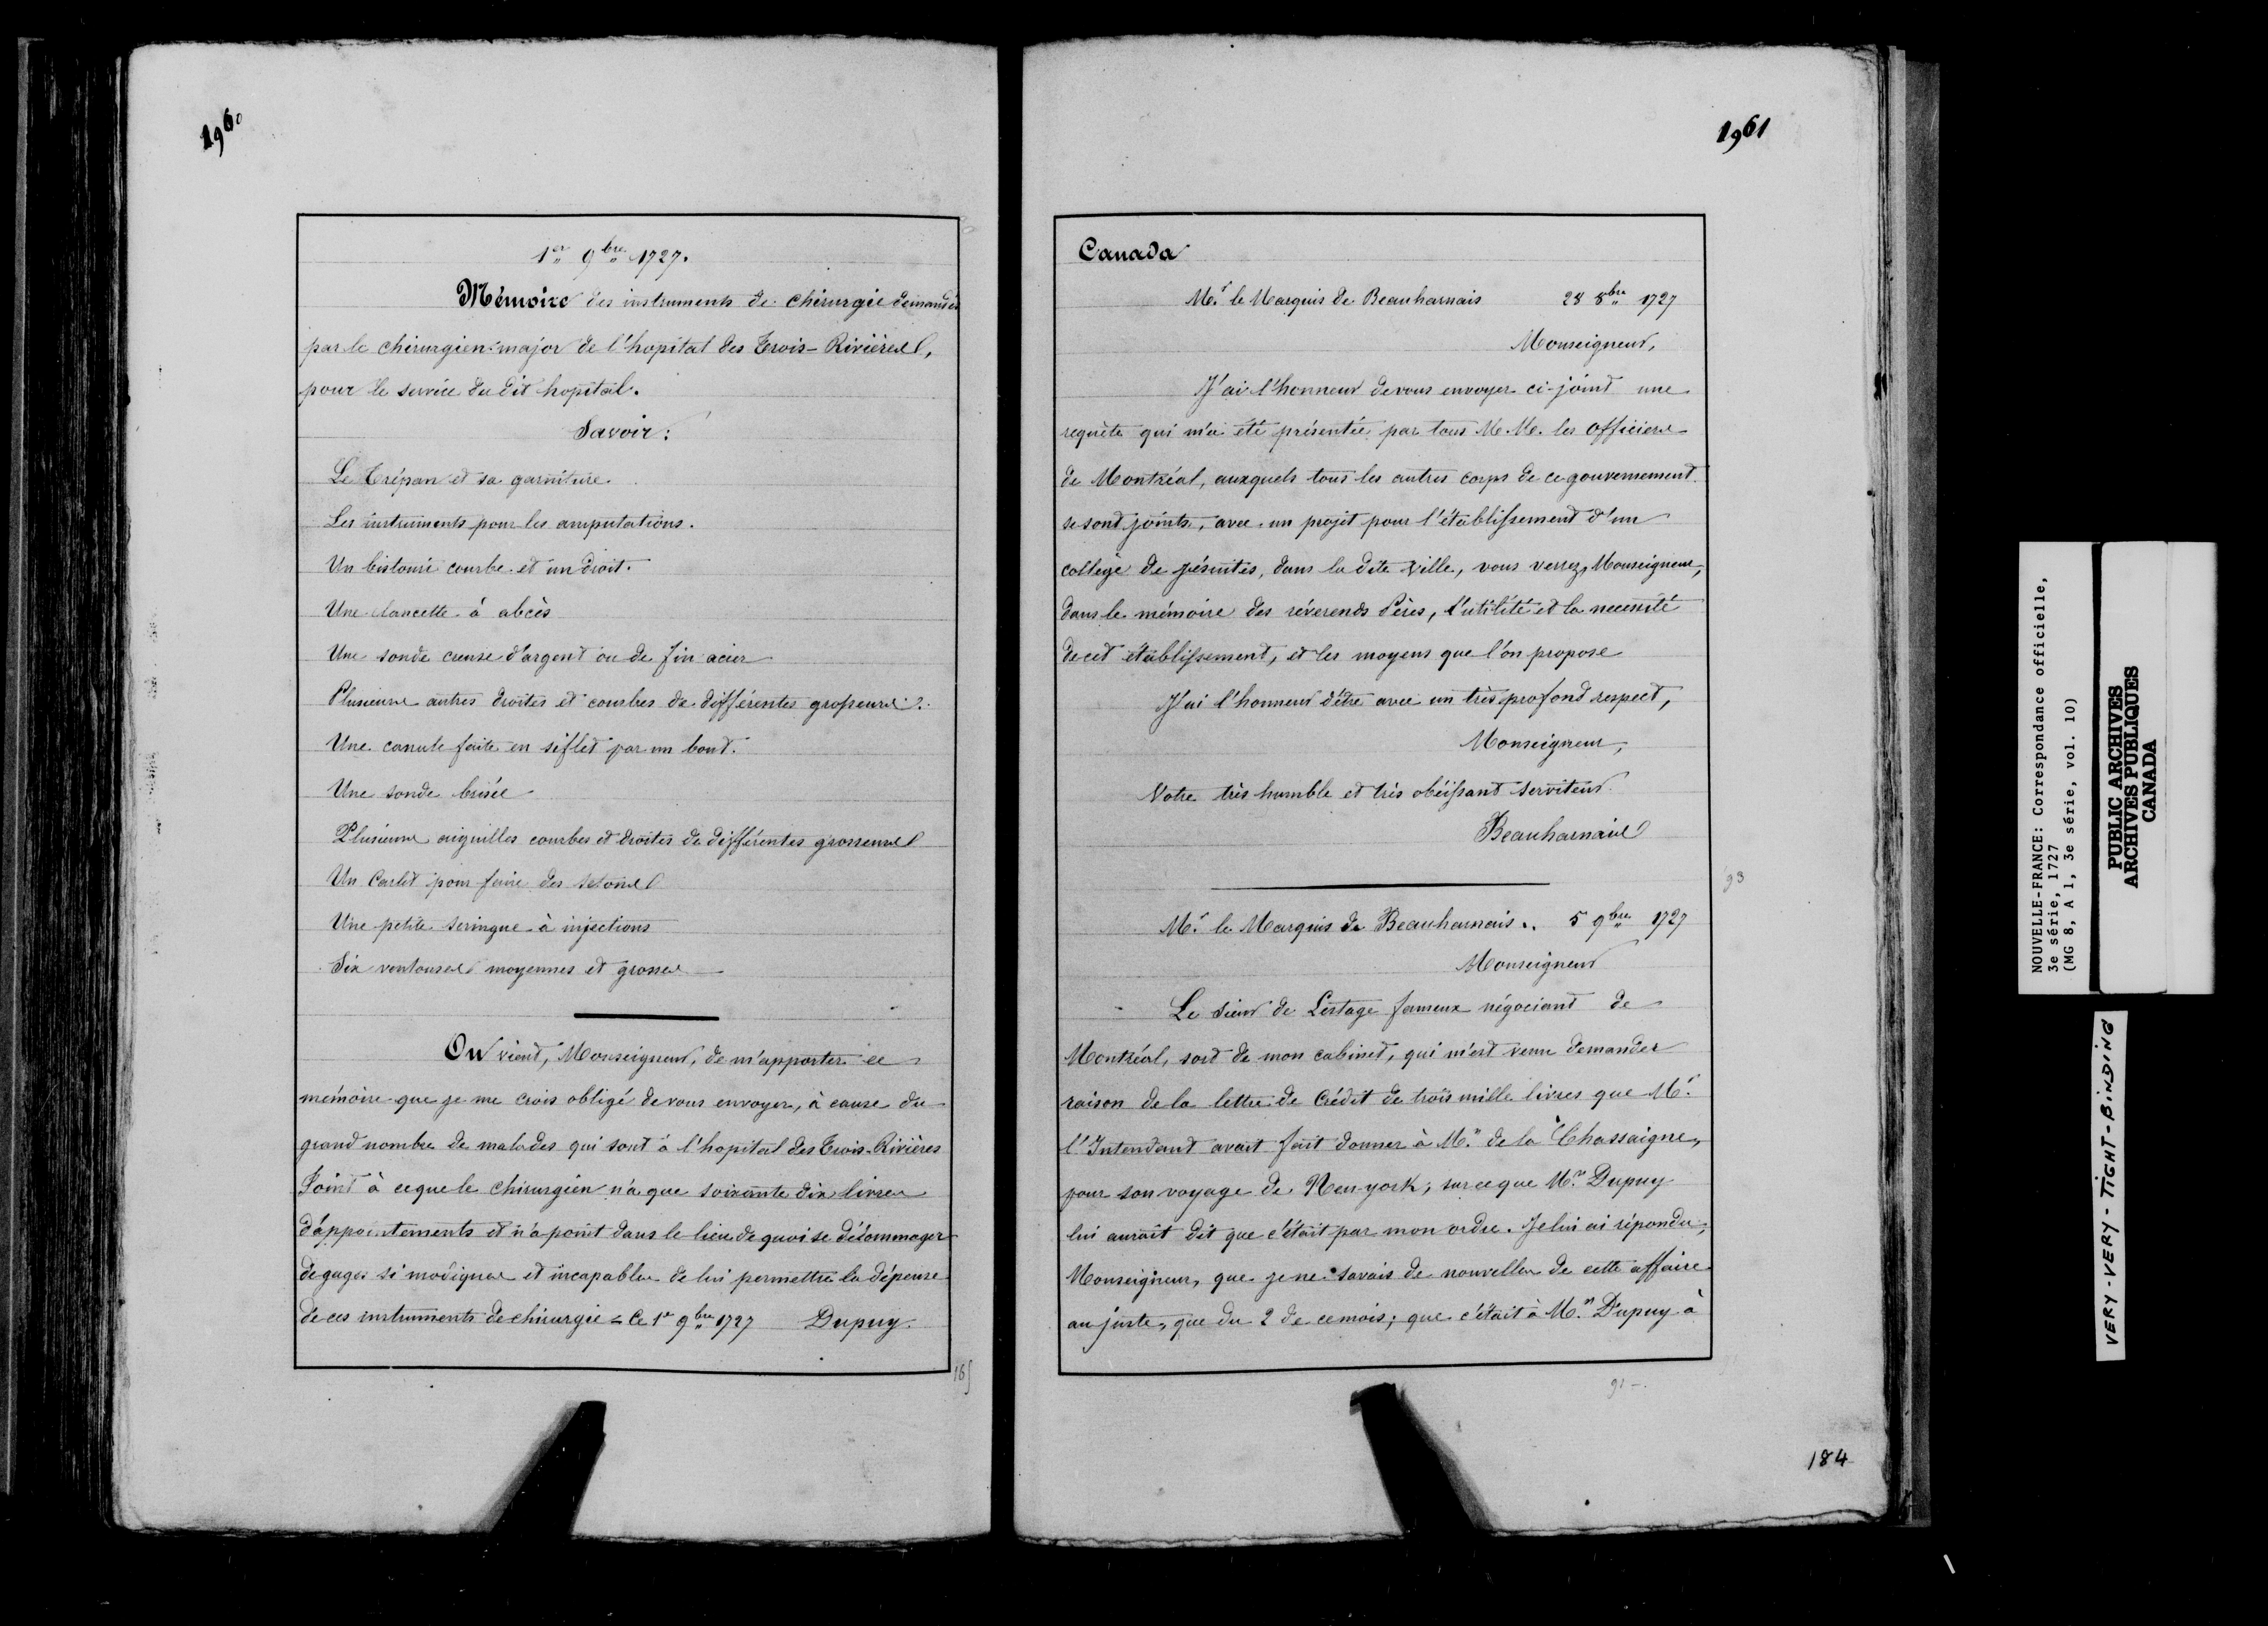 1960
1er 9bre 1727.
Mémoire des instruments de chirurgie demandés
par le chirurgien-major de l'hopital des Trois-Rivières,
pour le service du dit hopital.
Savoir:
Le Trépan et sa garniture
Les instruments pour les amputations.
Un bistouri courbe et un droit.
Une lancette à abcès
Une sonde creuse d'argent ou de fin acier
Plusieurs autres droites et courbes de différentes grosseurs.
Une canule faite en siflet par un bout.
Une sonde brisée
Plusieurs aiguilles courbes et droites de différentes grosseurs
Un Carlet pour faire des setons
Une petite seringue à injections
Six ventouses moyennes et grosses
On vient, Monseigneur, de m'apporter ce
mémoire que je me crois obligé de vous envoyer, à cause du
grand nombre de malades qui sont à l'hopital des Trois-Rivières
Joint à ce que le chirurgien n'a que soixante dix livres
d'appointements et n'a point dans le lieu de quoi se dédommager
de gages si modiques et incapables de lui permettre la dépense
de ces instruments de chirurgie = Ce 1er 9bre 1727 Dupuy.
165
1961
Canada
Mr. le Marquis de Beauharnais 28 8bre 1727
Monseigneur,
J'ai l'honneur de vous envoyer ci-joint une
requête qui m'a été présentée par tous M. M. les officiers
de Montréal, auxquels tous les autres corps de ce gouvernement
se sont joints, avec un projet pour l'établissement d'un
collège de jésuites, dans la dite Ville, vous verrez, Monseigneur,
dans le mémoire des réverends Pères, l'utilité et la necessité
de cet établissement, et les moyens que l'on propose
J'ai l'honneur d'être avec un très profond respect,
Monseigneur,
Votre très humble et très obéissant serviteur
Beauharnais
93
Mr. le Marquis de Beauharnais.. 5 9bre 1727
Monseigneur
Le sieur de Lestage fameux négociant de
Montréal, sort de mon cabinet, qui m'est venu demander
raison de la lettre de Crédit de trois mille livres que Mr.
l'Intendant avait fait donner à Mr. de la Chassaigne,
pour son voyage de New-york, sur ce que Mr. Dupuy
lui aurait dit que c'était par mon ordre. Je lui ai répondu,
Monseigneur, que je ne savais de nouvelles de cette affaire
au juste, que du 2 de ce mois; que c'était à Mr. Dupuy à
91-.
184
NOUVELLE-FRANCE: Correspondance officielle,
3e série, 1727
(MG 8, A 1, 3e série, vol. 10)
PUBLIC ARCHIVES
ARCHIVES PUBLIQUES
CANADA
VERY-VERY-TIGHT-BINDING